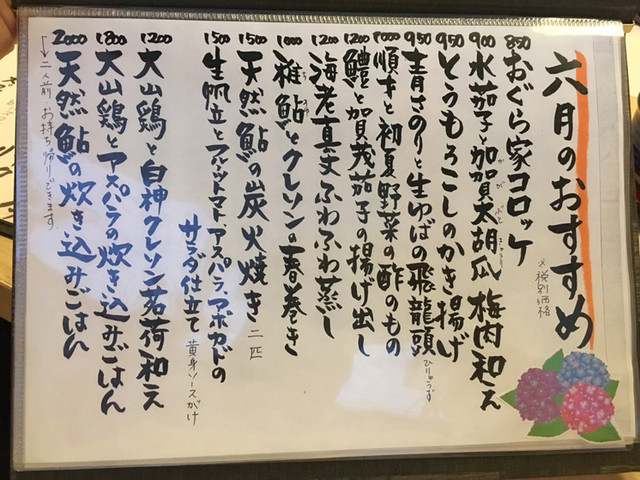 六月のおすすめ
※税別価格
850 おぐら家コロッケ
900 水茄子と加賀太胡瓜 梅肉和え
950 とうもろこしのかき揚げ
950 青さのりと生ゆばの飛龍頭
ひりゅうず
1000 順才と初夏野菜の酢のもの
1200 鱧と賀茂茄子の揚げ出し
1200 海老真丈ふわふわ蒸し
1000 稚鮎とクレソンの春巻き
1500 天然鮎の炭火焼き 二匹
1500 生帆立とフルーツトマト アスパラ アボカドの
サラダ仕立て 黄身ソースがけ
1200 大山鶏と白神クレソン茗荷和え
1800 大山鶏とアスパラの炊き込みごはん
2000 天然鮎の炊き込みごはん
二人前 お持ち帰りできます